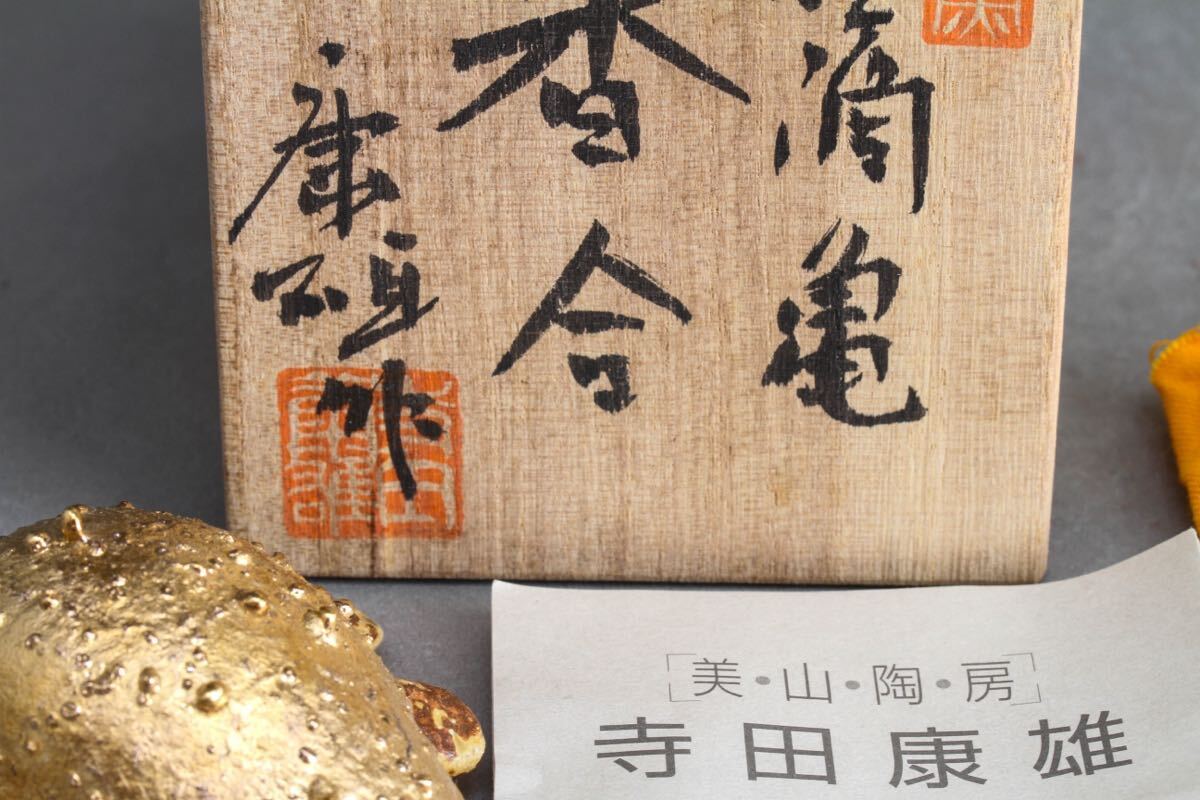 滴亀
香合
康雄作
美・山・陶・房
寺田康雄